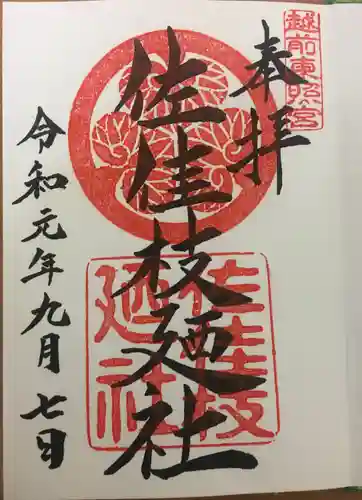 越前東照宮
奉拝
佐佳枝廼社
佐佳枝廼社
令和元年九月七日